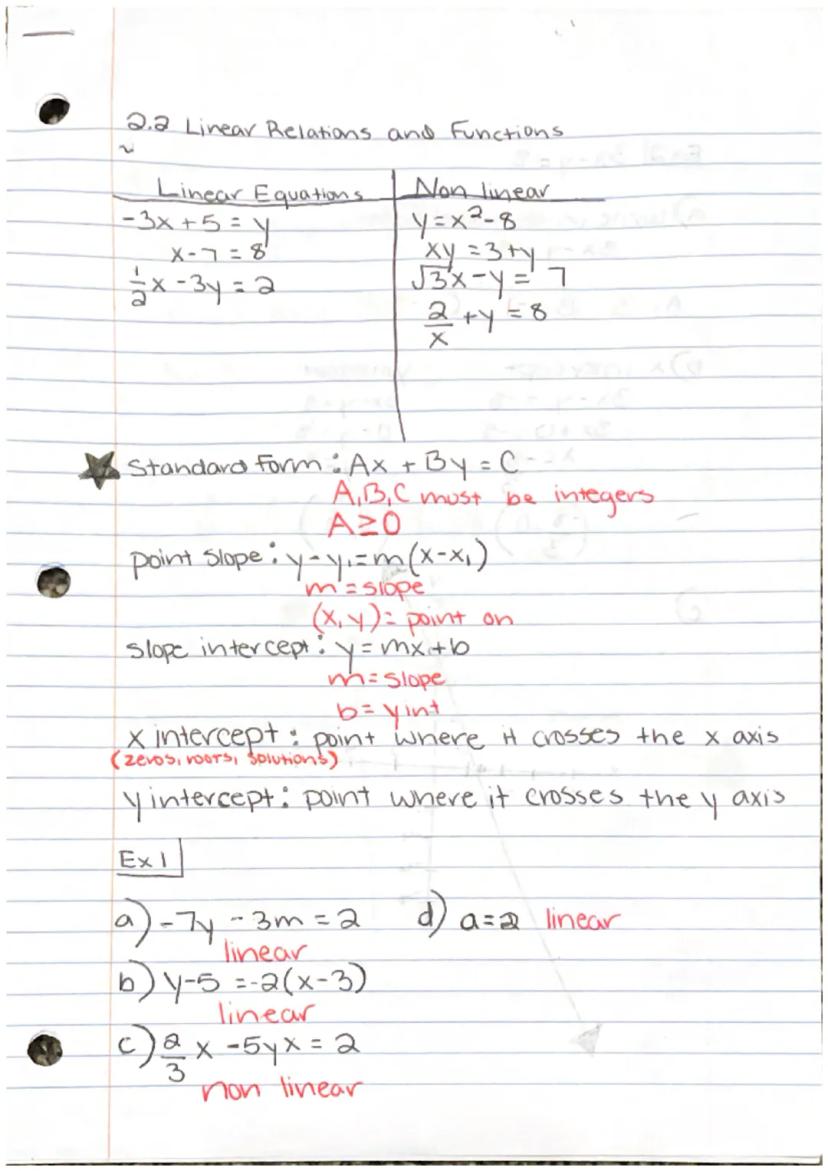 2.2 Linear Relations and Functions
Linear Equations | Non linear
-3x + 5 = y | y = x² - 8
x - 7 = 8 | xy = 3 + y
1/2 x - 3y = 2 | √3x - y = 7
2/x + y = 8
★ Standard Form: Ax + By = C
A, B, C must be integers
A ≥ 0
point slope: y - y₁ = m(x - x₁)
m = slope
(x, y) = point on
slope intercept: y = mx + b
m = slope
b = y int
x intercept: point where it crosses the x axis
(zeros, roots, solutions)
y intercept: point where it crosses the y axis
Ex 1
a) -7y - 3m = 2 d) a = 2 linear
linear
b) y - 5 = -2(x - 3)
linear
c) 2/3 x - 5yx = 2
non linear